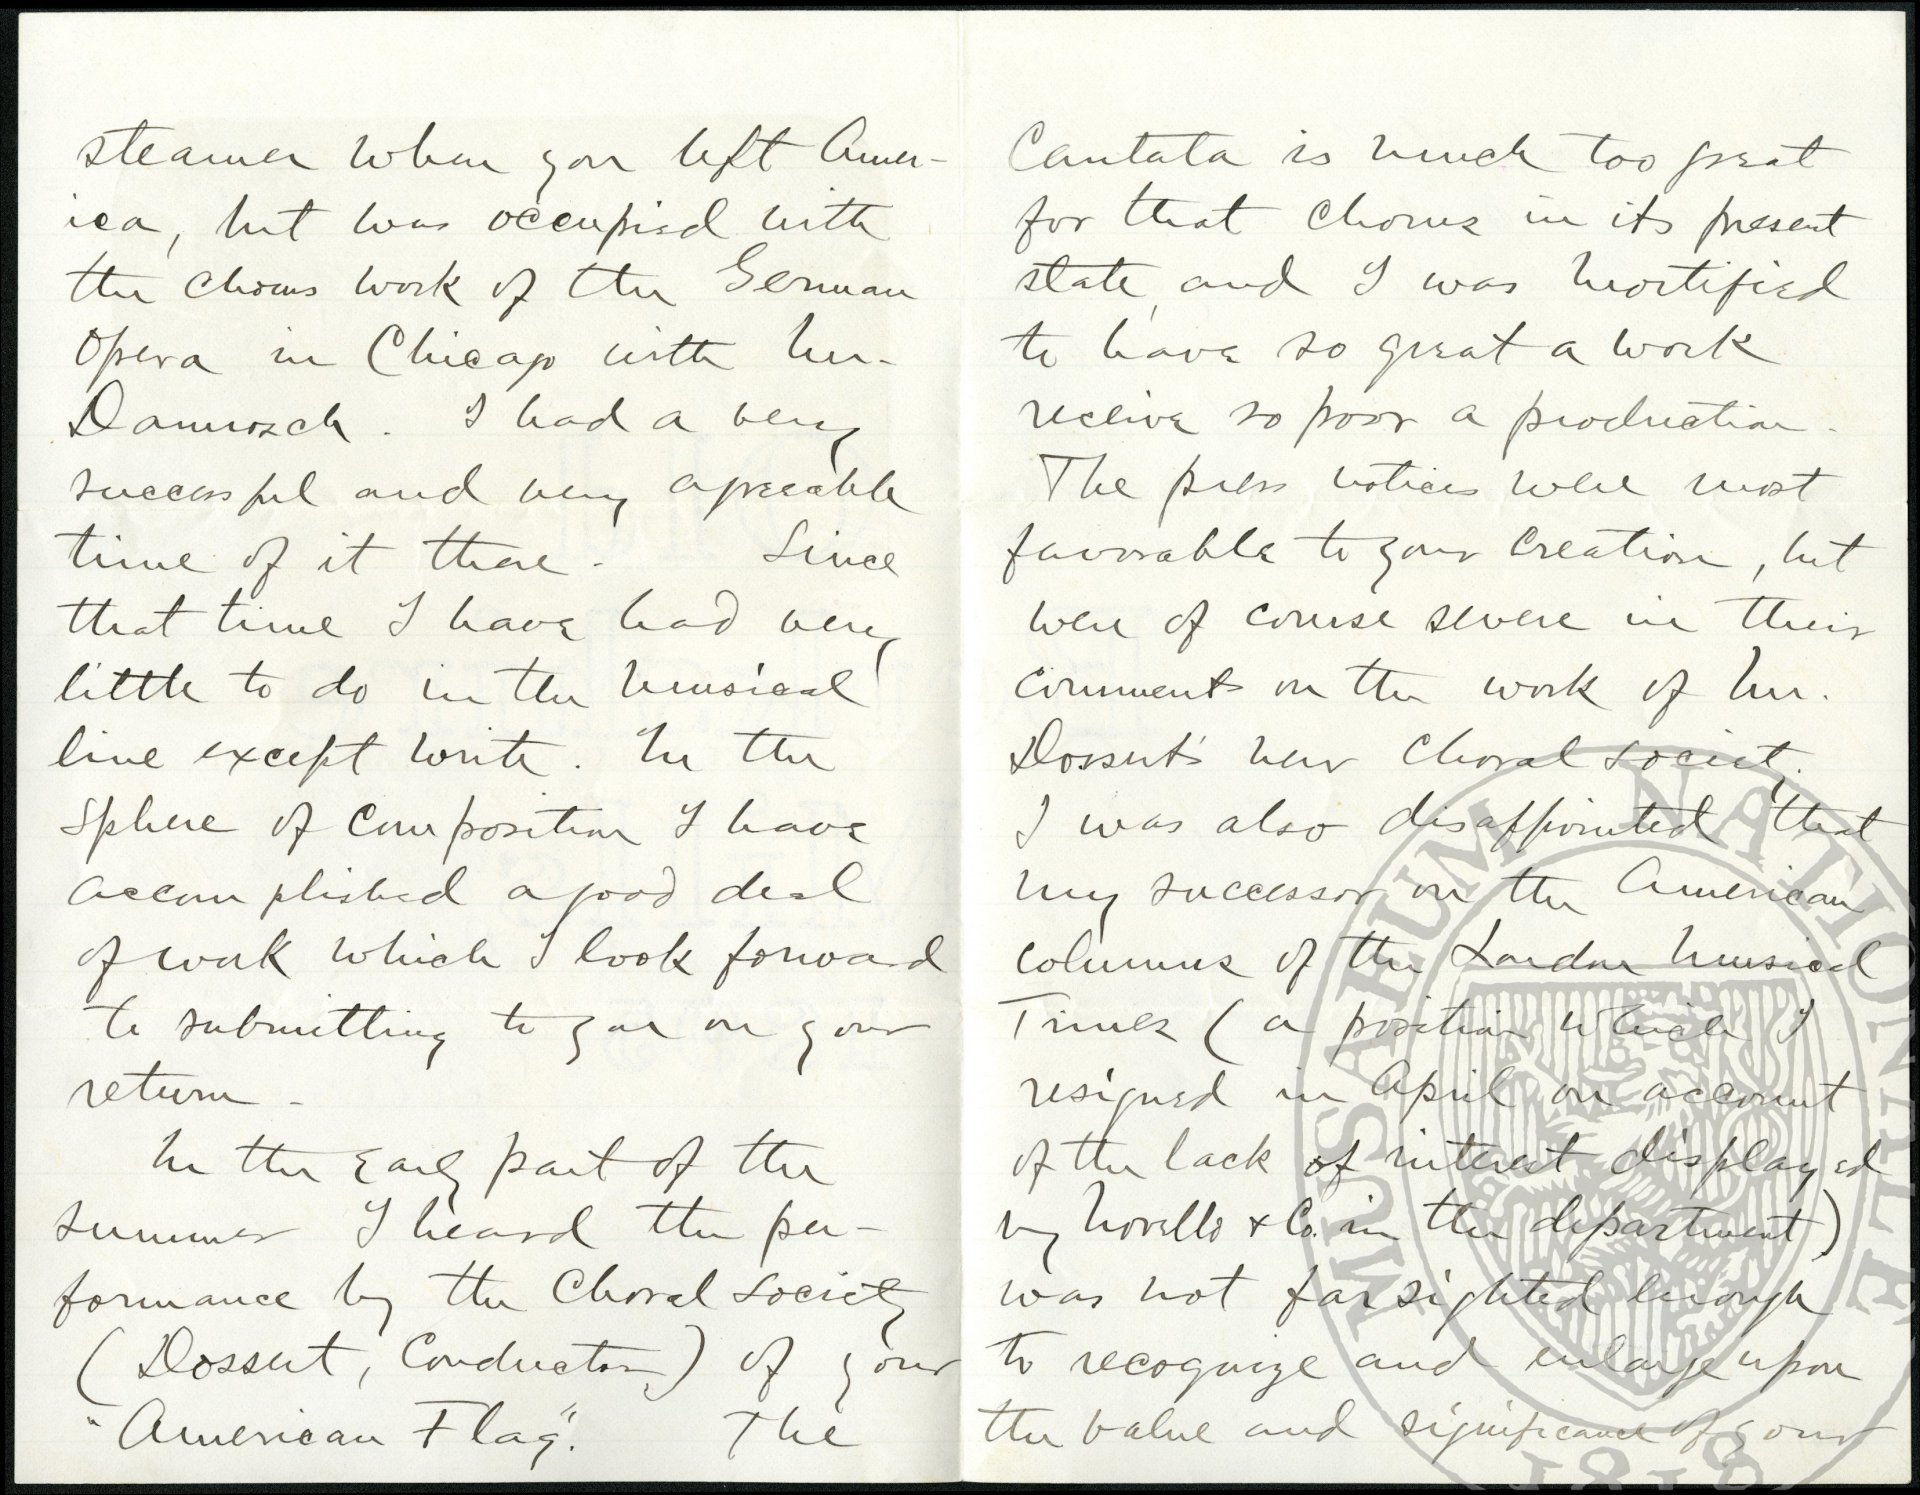 steamer when you left Amer-
ica, but was occupied with
the chorus work of the German
Opera in Chicago with Mr.
Damrosch. I had a very
successful and very agreeable
time of it there. Since
that time I have had very
little to do in the musical
line except write. In the
sphere of composition I have
accomplished a good deal
of work which I look forward
to submitting to you on your
return.
In the early part of the
summer I heard the per-
formance by the Choral Society
(Dossert, Conductor) of your
"American Flag". The
Cantata is much too great
for that chorus in its present
state, and I was mortified
to have so great a work
receive so poor a production.
The press notices were most
favorable to your creation, but
were of course severe in their
comments on the work of Mr.
Dossert's new Choral Society.
I was also disappointed that
my successor on the American
columns of the London Musical
Times (a position which I
resigned in April on account
of the lack of interest displayed
by Novello & Co. in the department)
was not farsighted enough
to recognize and enlarge upon
the value and significance of your
MUSAEUM NATIONALE
1818